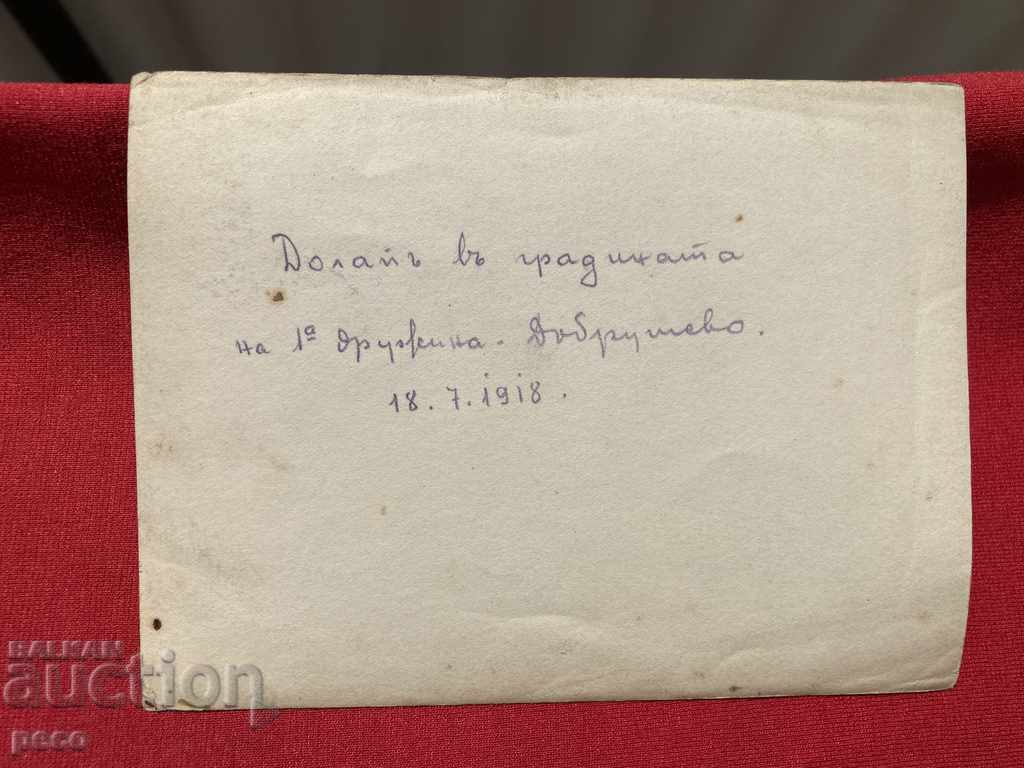 Долапъ въ градината
на 1ª дружина. Добрушево.
18.7.1918.
BALKAN
auction
peco